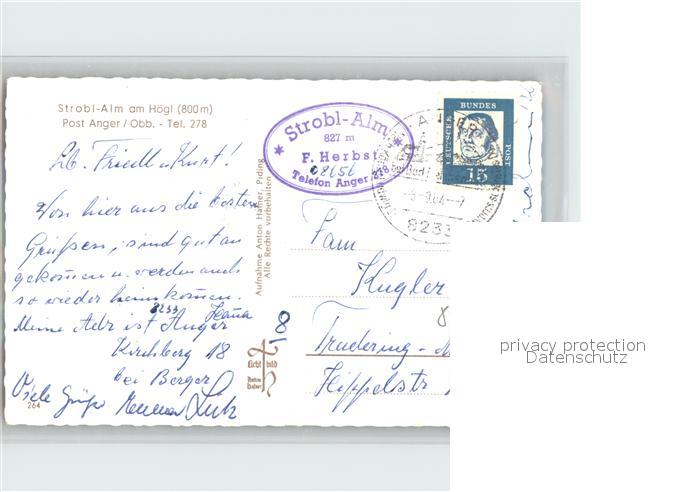 Strobl-Alm am Högl (800m)
Post Anger/Obb. - Tel. 278
Lb. Friedl u Kurt!
Von hier aus die besten
Grüßen, sind gut an
gekommen u. werden auch
so wieder heimkommen.
8233
Meine Adr ist Anger
Kirchberg 18
bei Berger
Viele Grüße
264
Aufnahme Anton Hafner, Piding
Alle Rechte vorbehalten
Licht bild
Strobl-Alm
827 m
F. Herbst
08656
Telefon Anger 278
DEUTSCHE BUNDES POST
15
8233
Fam
Kugler
8
Trudering-
Hippelstr
privacy protection
Datenschutz